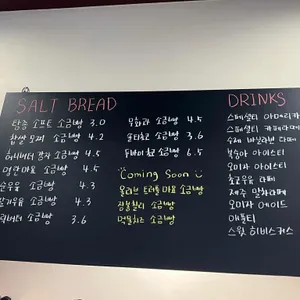 SALT BREAD
탕종 소프트 소금빵 3.0
찹쌀 모찌 소금빵 4.2
허니버터 감자 소금빵 6.5
명란마요 소금빵 4.5
우유 소금빵 4.3
우유 소금빵 4.3
버터 소금빵 3.6
무화과 소금빵 4.5
솔티초코 소금빵 3.6
두바이 초코 소금빵 6.5
Coming Soon
올리브 트러플마요 소금빵
칠리 소금빵
먹물치즈 소금빵
DRINKS
스페셜티 아메리카
스페셜티 카페라떼
수제 바닐라빈 라떼
복숭아 아이스티
오미자 아이스티
초코우유 라떼
제주 말차라떼
오미자 에이드
애플티
스윗 히비스커스